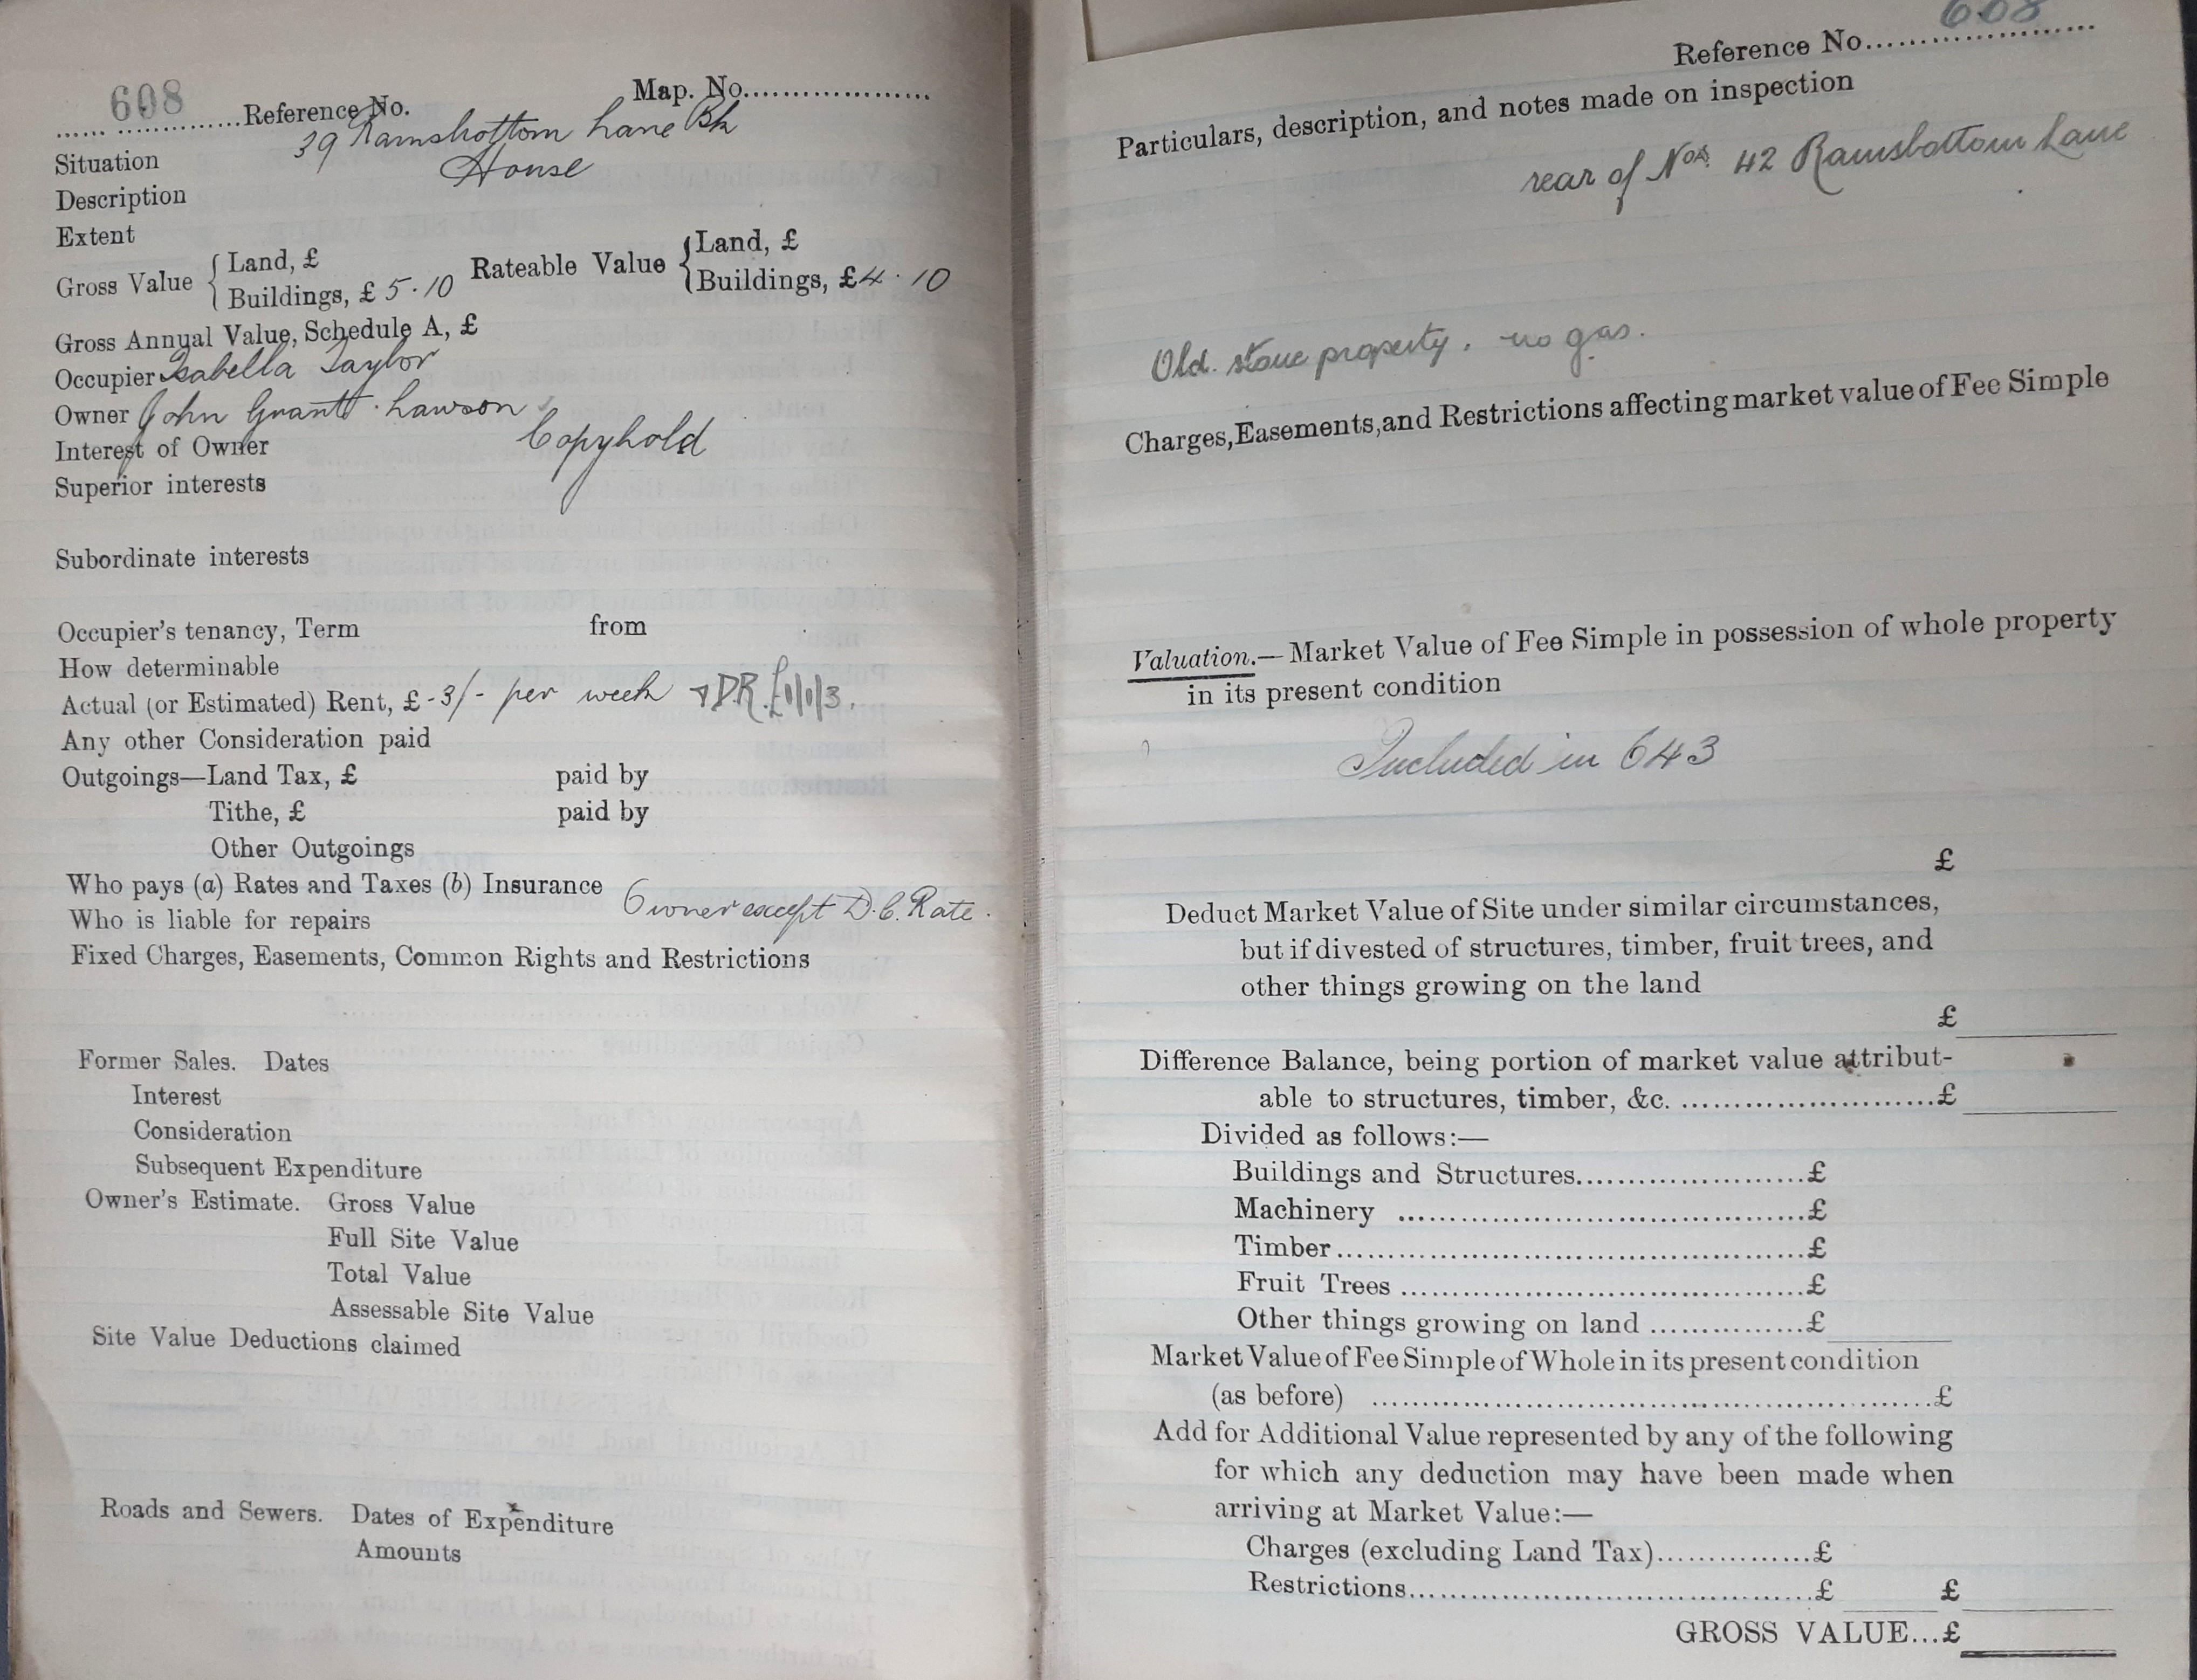 608 Reference No. Map. No.
Situation 39 Ramsbottom Lane Bk
Description House
Extent
Gross Value { Land, £ Rateable Value { Land, £
Buildings, £ 5.10 Buildings, £4.10
Gross Annual Value, Schedule A, £
Occupier Isabella Taylor
Owner John Grant Lawson
Interest of Owner Copyhold
Superior interests
Subordinate interests
Occupier's tenancy, Term from
How determinable
Actual (or Estimated) Rent, £ - 3/- per week D.R. £1/1/3.
Any other Consideration paid
Outgoings—Land Tax, £ paid by
Tithe, £ paid by
Other Outgoings
Who pays (a) Rates and Taxes (b) Insurance Owner except D.C. Rate.
Who is liable for repairs
Fixed Charges, Easements, Common Rights and Restrictions
Former Sales. Dates
Interest
Consideration
Subsequent Expenditure
Owner's Estimate. Gross Value
Full Site Value
Total Value
Assessable Site Value
Site Value Deductions claimed
Roads and Sewers. Dates of Expenditure
Amounts
Reference No. 608
Particulars, description, and notes made on inspection
rear of Nos. 42 Ramsbottom Lane
Old. stone property, no gas.
Charges, Easements, and Restrictions affecting market value of Fee Simple
Valuation.—Market Value of Fee Simple in possession of whole property
in its present condition
Included in 643
£
Deduct Market Value of Site under similar circumstances,
but if divested of structures, timber, fruit trees, and
other things growing on the land
£
Difference Balance, being portion of market value attribut-
able to structures, timber, &c. £
Divided as follows:—
Buildings and Structures £
Machinery £
Timber £
Fruit Trees £
Other things growing on land £
Market Value of Fee Simple of Whole in its present condition
(as before) £
Add for Additional Value represented by any of the following
for which any deduction may have been made when
arriving at Market Value:—
Charges (excluding Land Tax) £
Restrictions £ £
GROSS VALUE... £